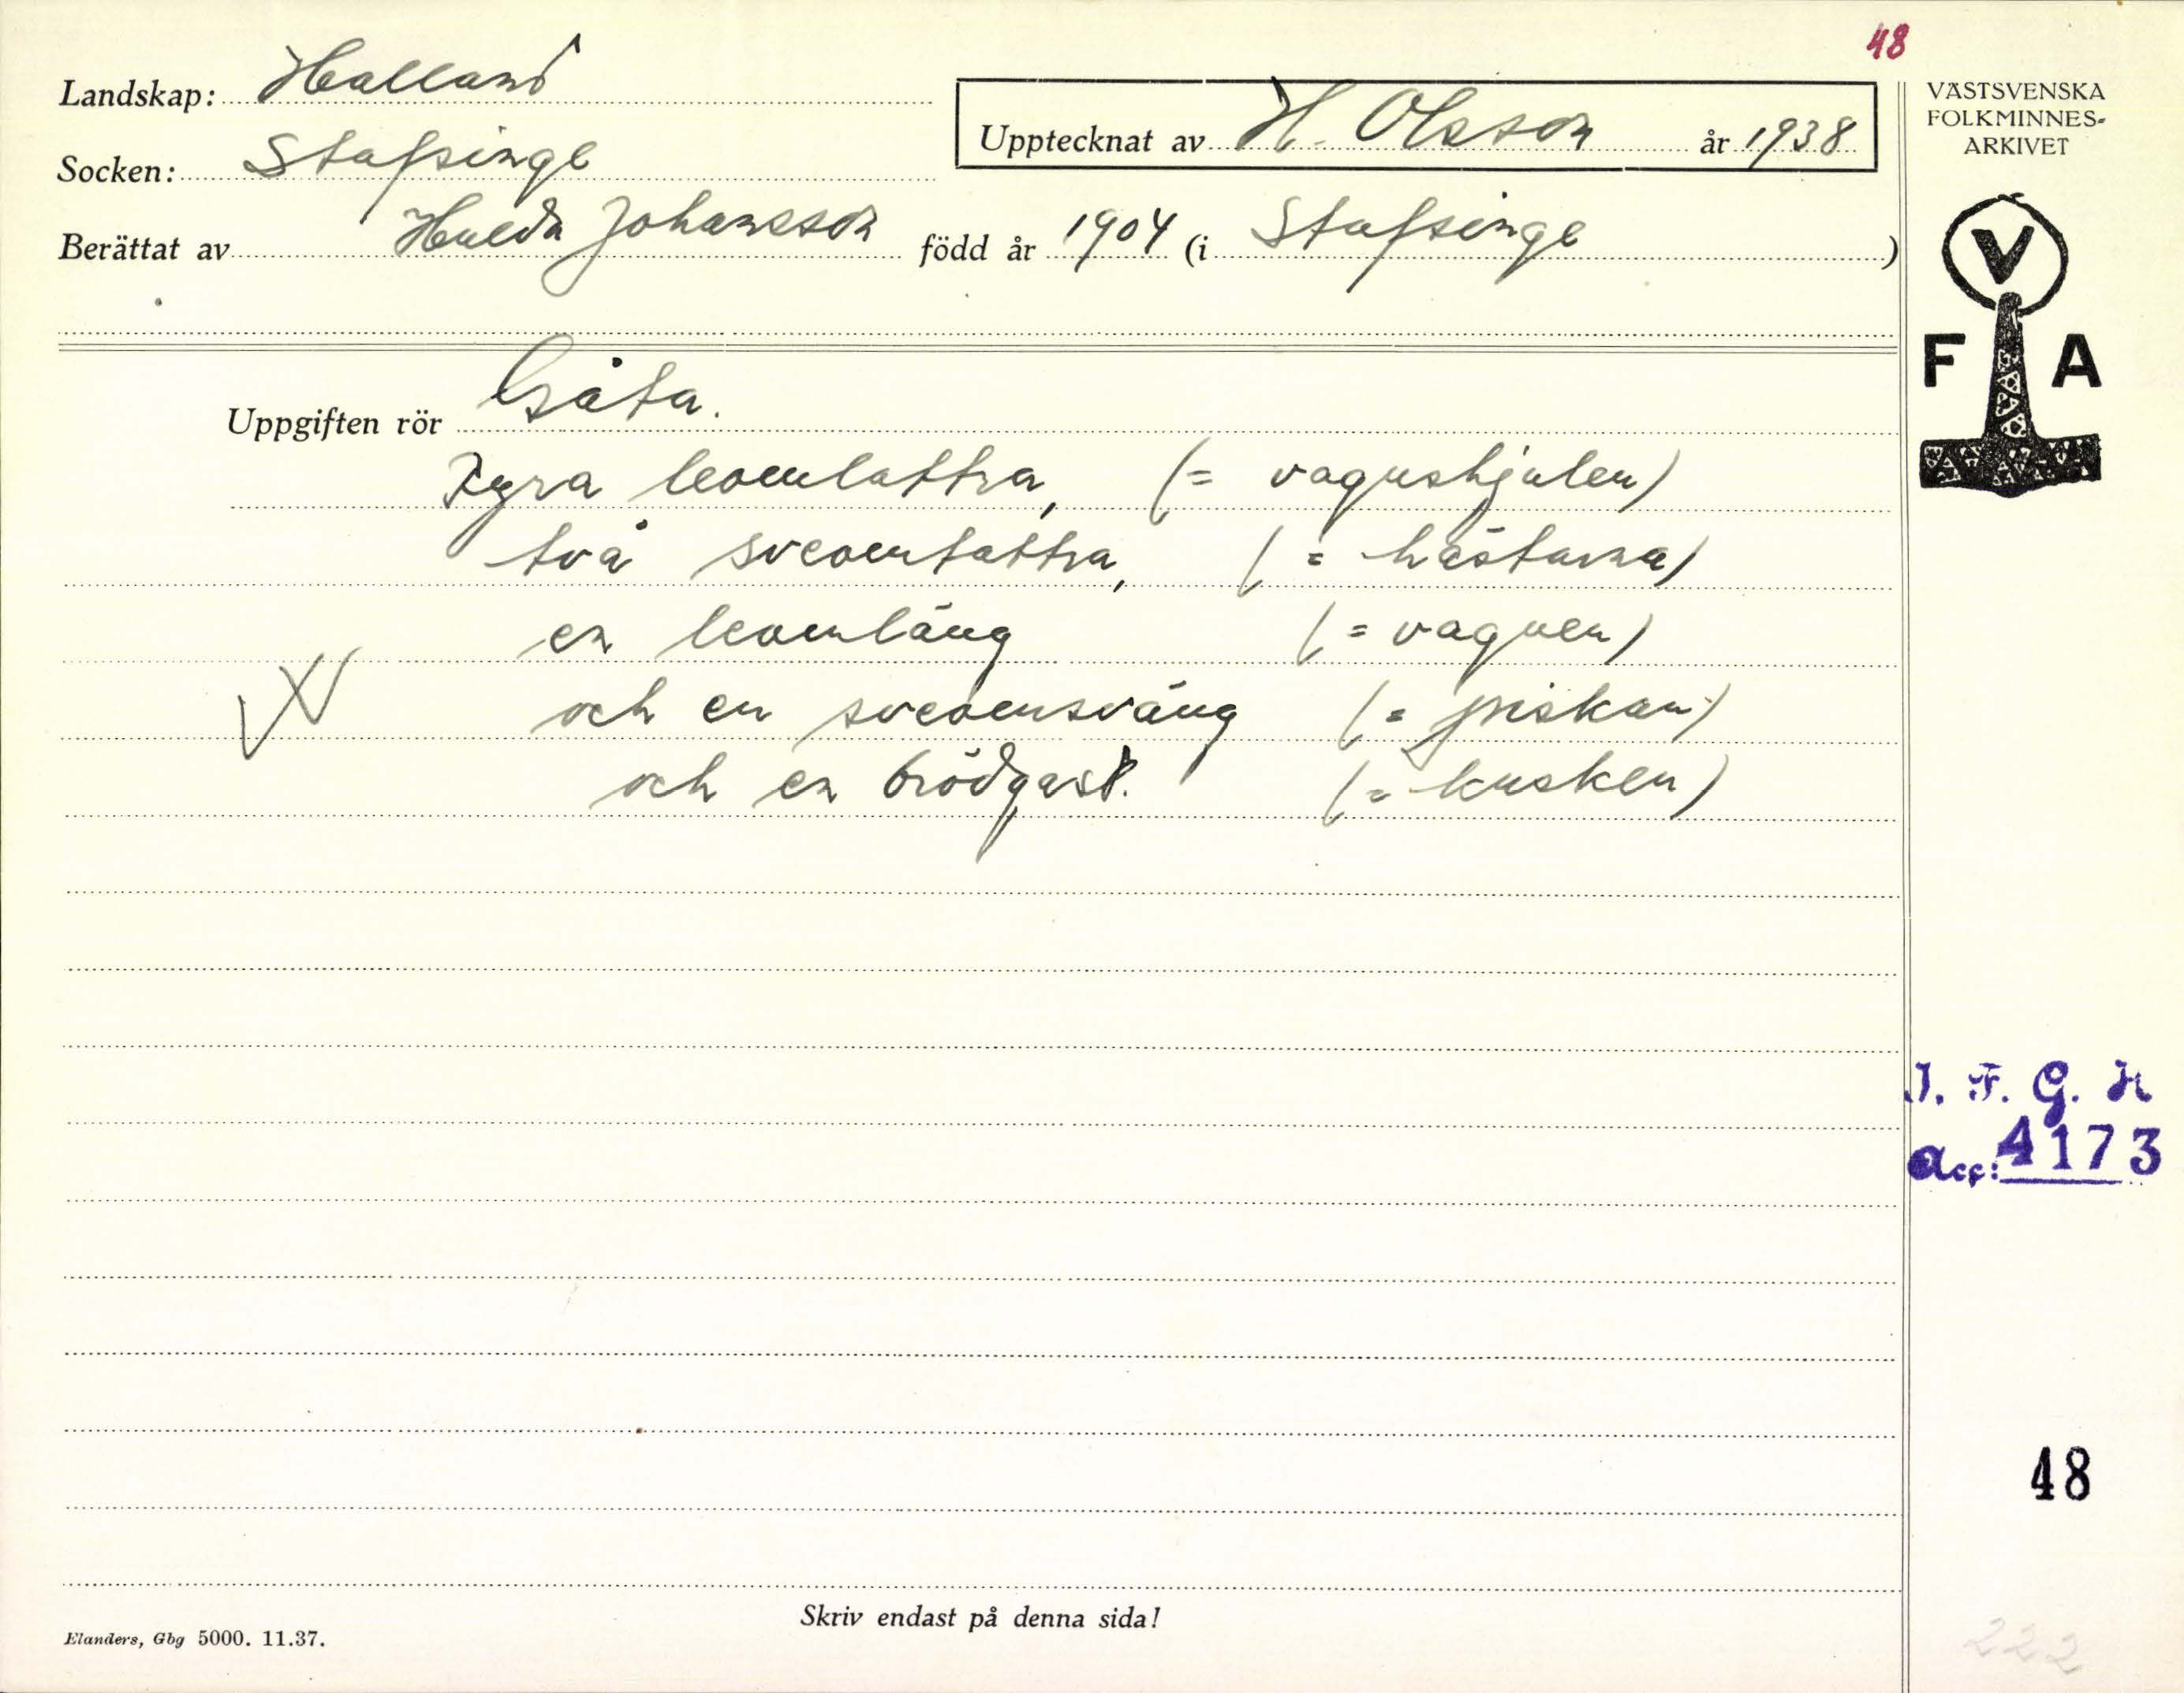 48
Landskap: Halland
Upptecknat av H. Olsson år 1938
VÄSTSVENSKA
FOLKMINNES-
ARKIVET
Socken: Stafsinge
Berättat av Hulda Johansson född år 1904 (i Stafsinge )
V
F A
Uppgiften rör Gåta.
Fyra leomlattra, (= vagnshjulen)
två sveomtattra, (= hästarna)
en leomläng (= vagnen)
och en sveomsväng (= piskan)
och en brödgast. (= kusken)
I. F. G. H
Acc: 4173
48
Skriv endast på denna sida!
Elanders, Gbg 5000. 11.37.
222